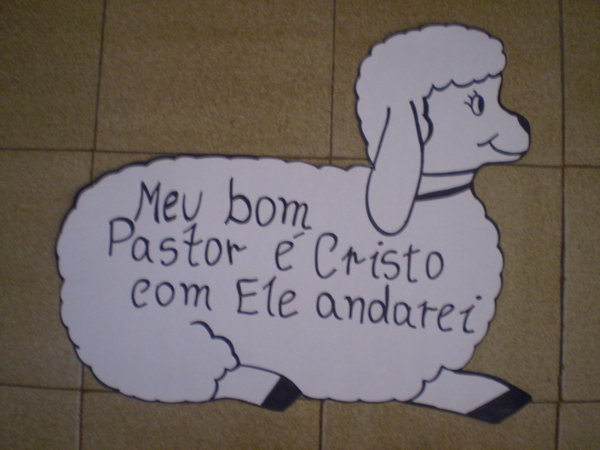 Meu bom
Pastor é Cristo
com Ele andarei